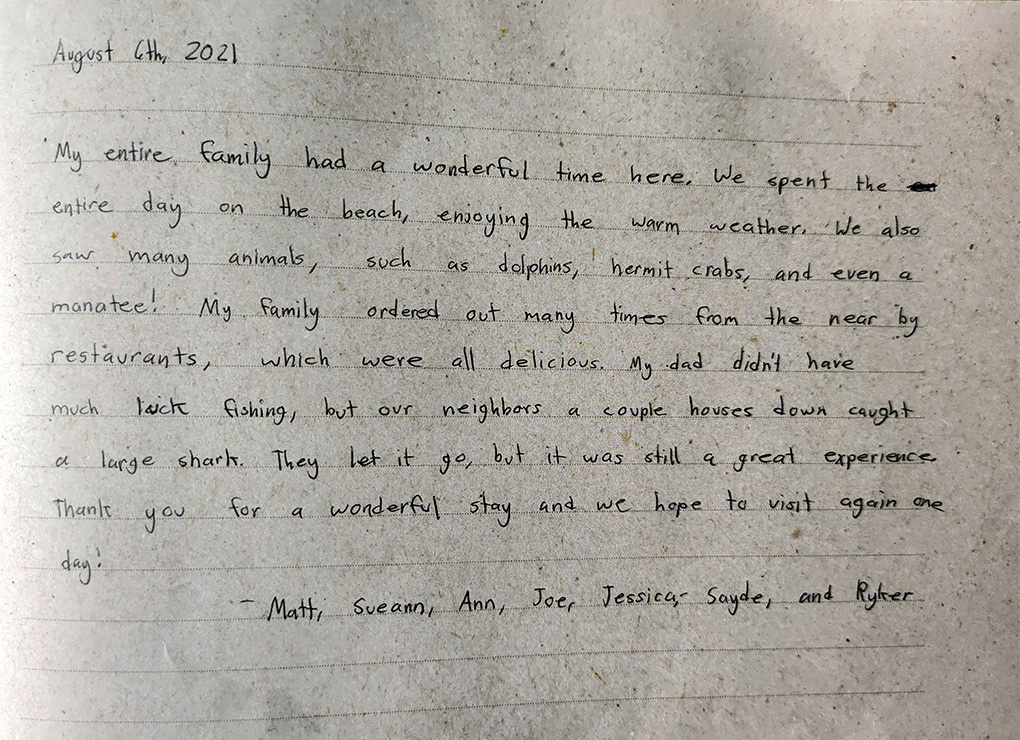 August 6th, 2021
My entire family had a wonderful time here. We spent the
entire day on the beach, enjoying the warm weather. We also
saw many animals, such as dolphins, hermit crabs, and even a
manatee! My family ordered out many times from the near by
restaurants, which were all delicious. My dad didn't have
much luck fishing, but our neighbors a couple houses down caught
a large shark. They let it go, but it was still a great experience.
Thank you for a wonderful stay and we hope to visit again one
day!
- Matt, Sueann, Ann, Joe, Jessica, Sayde, and Ryker